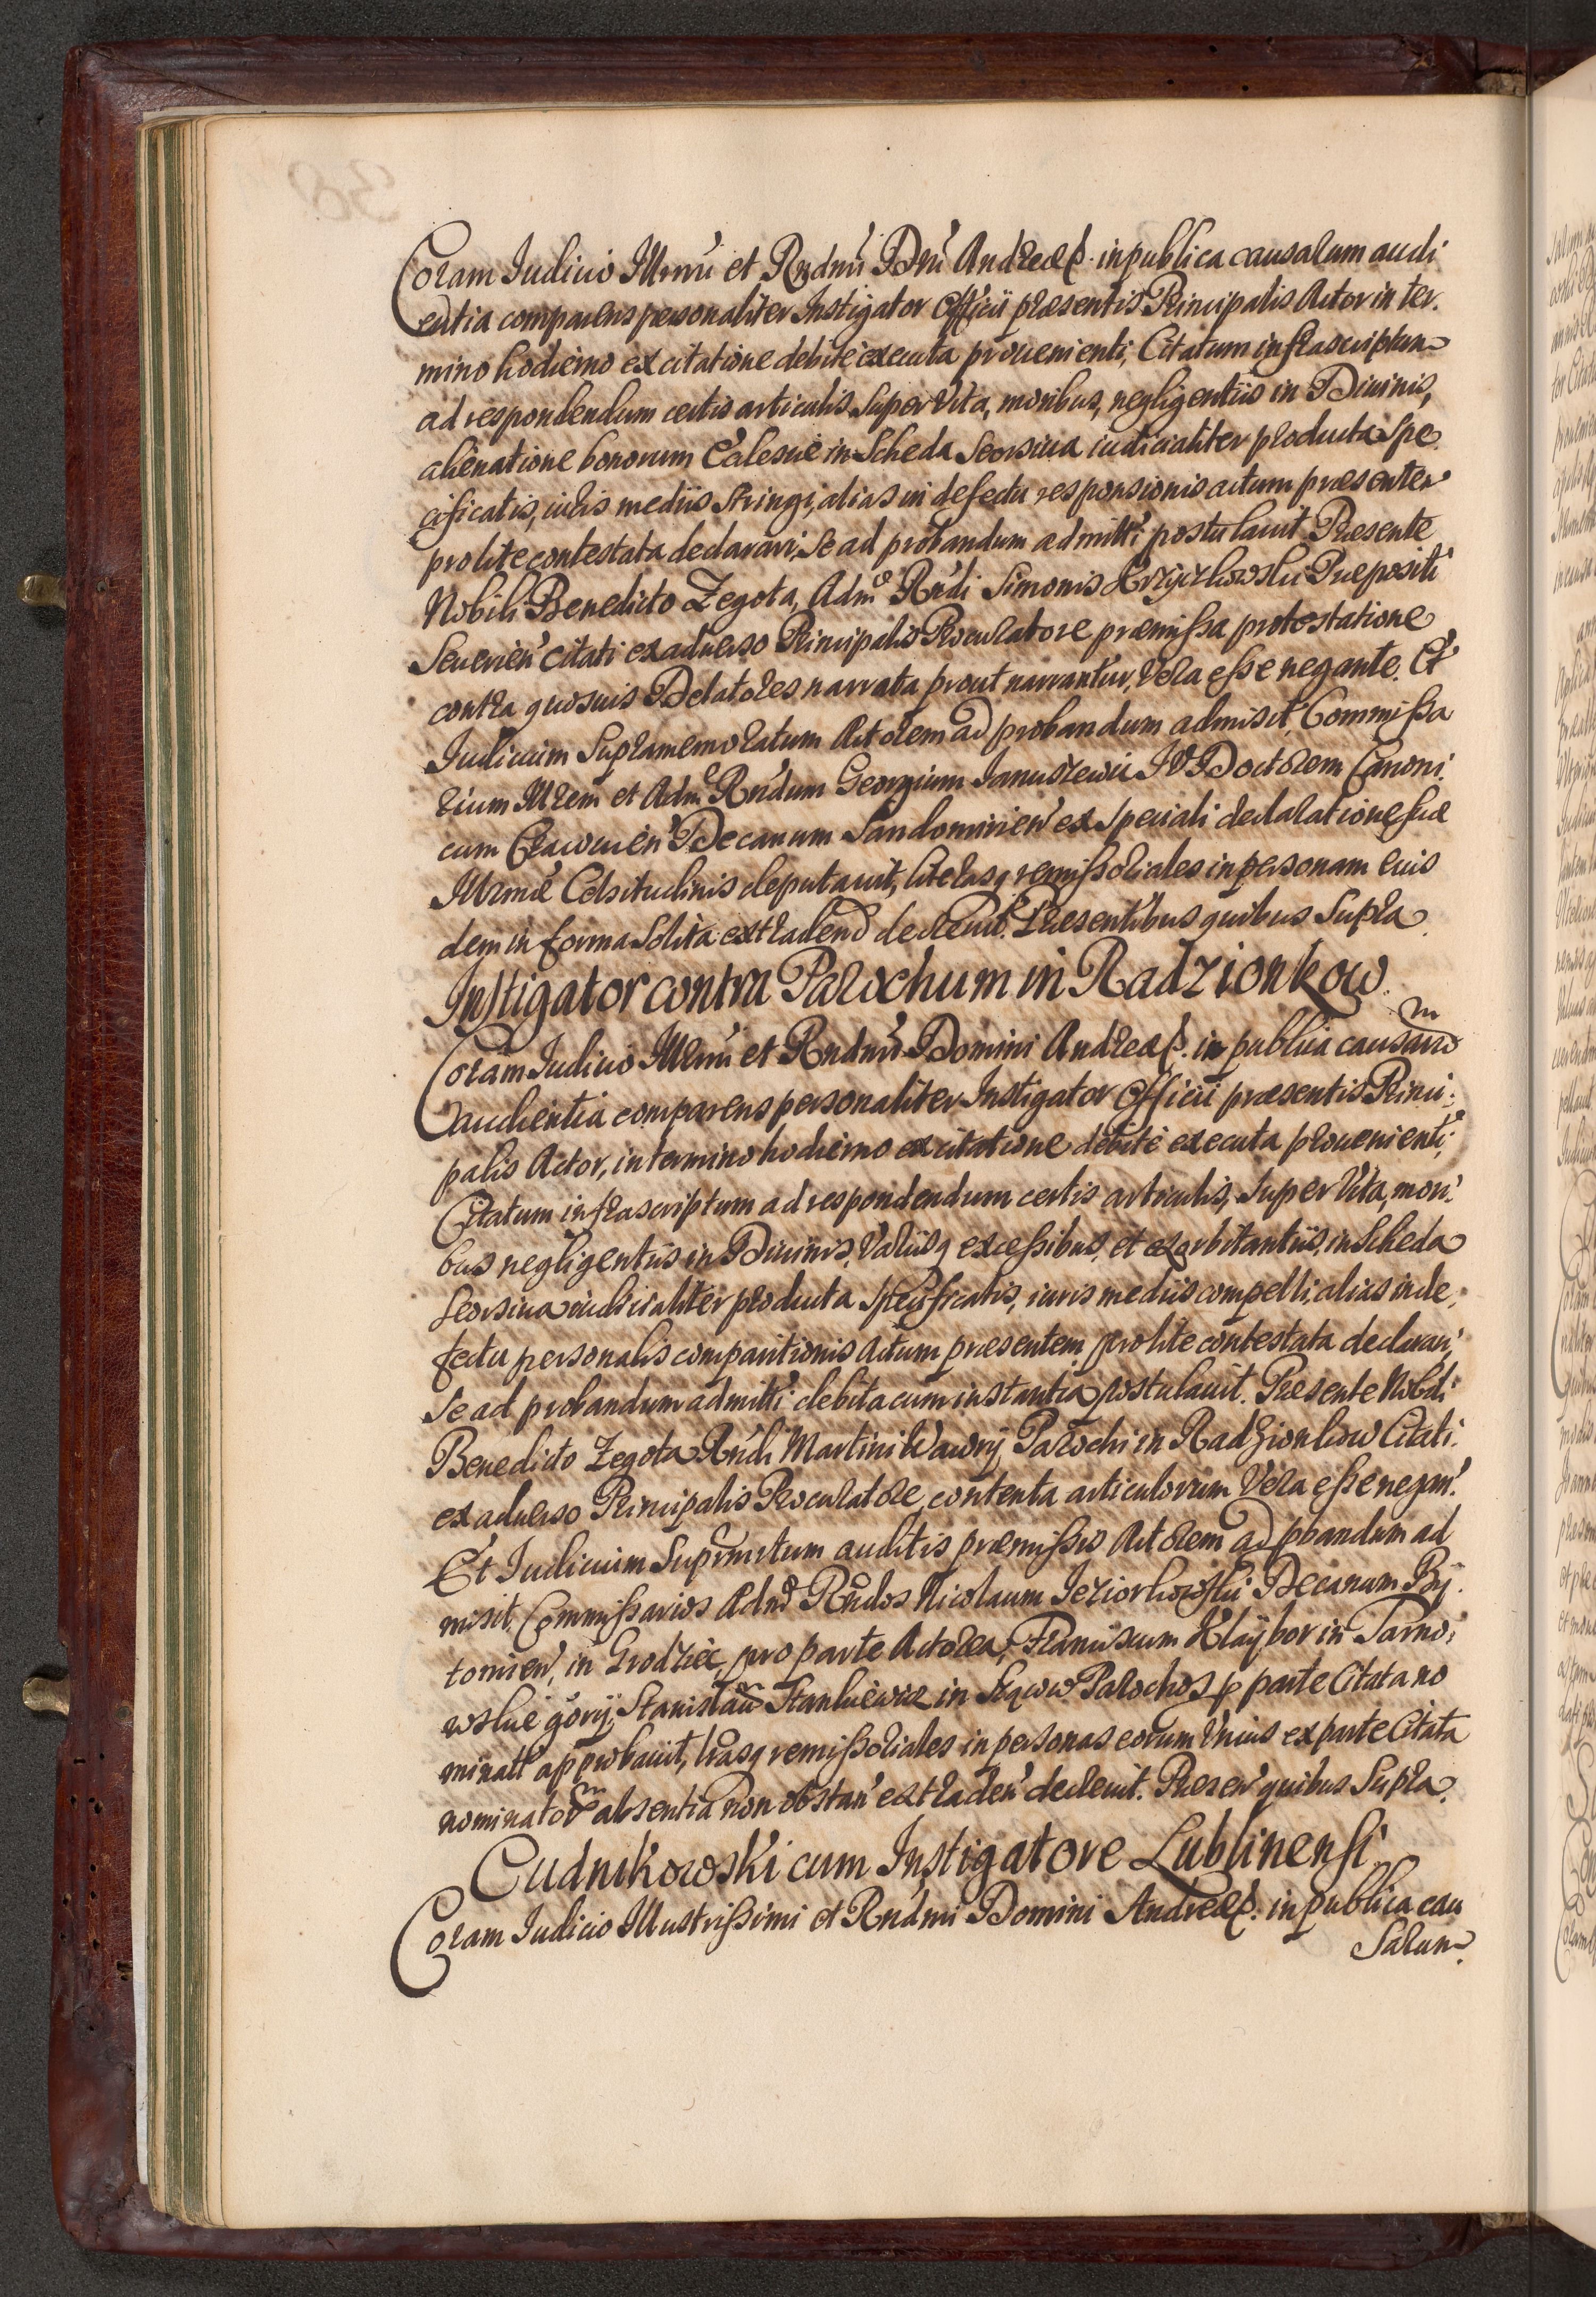 Coram Iudicio Illrmi et Rndmi Dni Andreæ &. in publica causarum audi
entia comparens personaliter Instigator Officii præsentis Principalis Actor in ter.
mino hodierno ex citatione debite executa provenienti, Citatum infrascriptum
ad respondendum certis articulis super Vita, moribus, negligentiis in Divinis,
alienatione bonorum Ecclesiæ in Scheda Seorsiva iudicialiter producta Spe
cificatis, iuris mediis stringi, alias in defectu responsionis actum præsentem
pro lite contestata declarari, Se ad probandum admitti postulavit. Præsente
Nobili Benedicto Zegota, Admo Rndi Simonis Krzyczkowski Præpositi
Severien citati ex adverso Principalis Procuratore præmissa protestatione
contra quosvis Delatores narrata prout narrantur, Vera esse negante. Et
Iudicium Supramemoratum Actorem ad probandum admisit, Commissa
rium Illrem et Adm Rndum Georgium Januszewic IV Doctorem Canoni
cum Cracovien Decanum Sandomirien ex speciali declaratione suæ
Illrmæ Celsitudinis deputavit, literasq remissoriales in personam eius
dem in forma Solita extradend decrevit. Præsentibus quibus Supra
Instigator contra Parochum in Radzionkow
Coram Iudicio Illrmi et Rndmi Domini Andreæ &. in publica causarum
audientia comparens personaliter Instigator Officii præsentis Princi:
palis Actor, in termino hodierno ex citatione debite executa provenienti,
Citatum infrascriptum ad respondendum certis articulis, super Vita, mori:
bus negligentiis in Divinis, Variisq excessibus, et exorbitantiis, in Scheda
Seorsiva iudicialiter producta Specificatis, iuris mediis compelli, alias in de,
fectu personalis comparitionis Actum præsentem pro lite contestata declarari,
Se ad probandum admitti debita cum instantia postulavit. Præsente Nobili
Benedicto Zegota Rndi Martini Wawry, Parochi in Radzionkow Citati
ex adverso Principalis Procuratore, contenta articulorum Vera esse negan.
Et Iudicium Suprmrtum auditis præmissis Actorem ad pbandum ad
misit, Commissarios Adm Rndos Nicolaum Jeziorkowski Decanum By
tomien, in Grodziec, pro parte Actorea, Franciscum Klaybor in Tarno:
wskie gory, Stanislaum Stankiewicz in Parochos p parte Citata no
minatt approbavit, lrasq remissoriales in personas eorum Unius ex parte Citata
nominatorum absentia non obstan extraden decrevit. Præsen quibus Supra.
Cudnikowski cum Instigatore Lublinensi
Coram Iudicio Illustrissimi et Rndmi Domini Andreæ &. in publica cau
Sarum